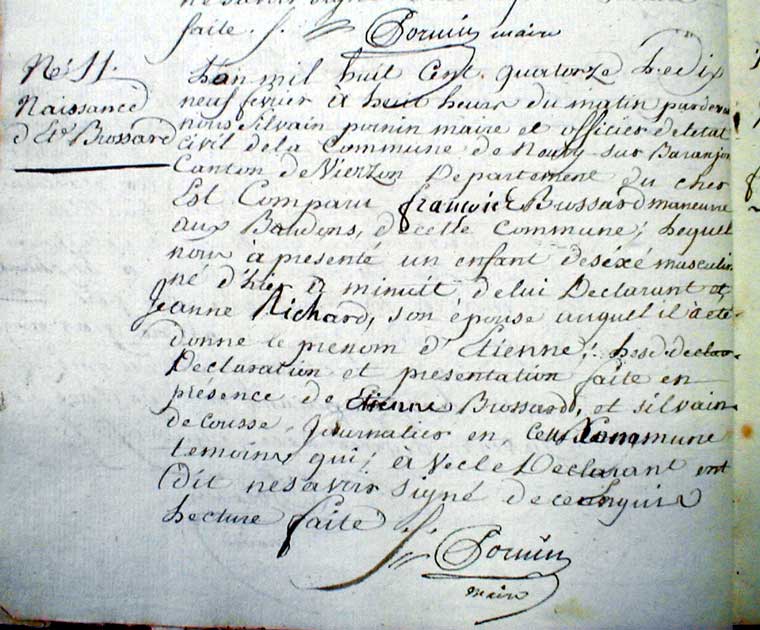 faite. Pornin maire
N° 11.
Naissance
d'Et. Brossard
L'an mil huit Cent. quatorze Le dix
neuf fevrier à huit heurs du matin pardevan
nous Silvain pornin maire et officier deletat
Civil dela Commune de noury sur Baranjon
Canton de Vierzon Departement du cher
Est Comparu françois Brossard maneuvre
aux Baudons, decette Commune; Lequel
nour à présenté un enfant deséxé masculin
né d'hier à minuit, delui Declarant et
Jeanne Richard, son épouse auquel il à eté
donne le prenom d'Etienne;
Declaration et présentation faite en
présence de Etienne Brossard, et silvain
decousse Journalier en Cette Commune
temoins qui; à vec le Declarant ont
dit nesavoir signé dece enquis
Lecture faite
Pornin
maire